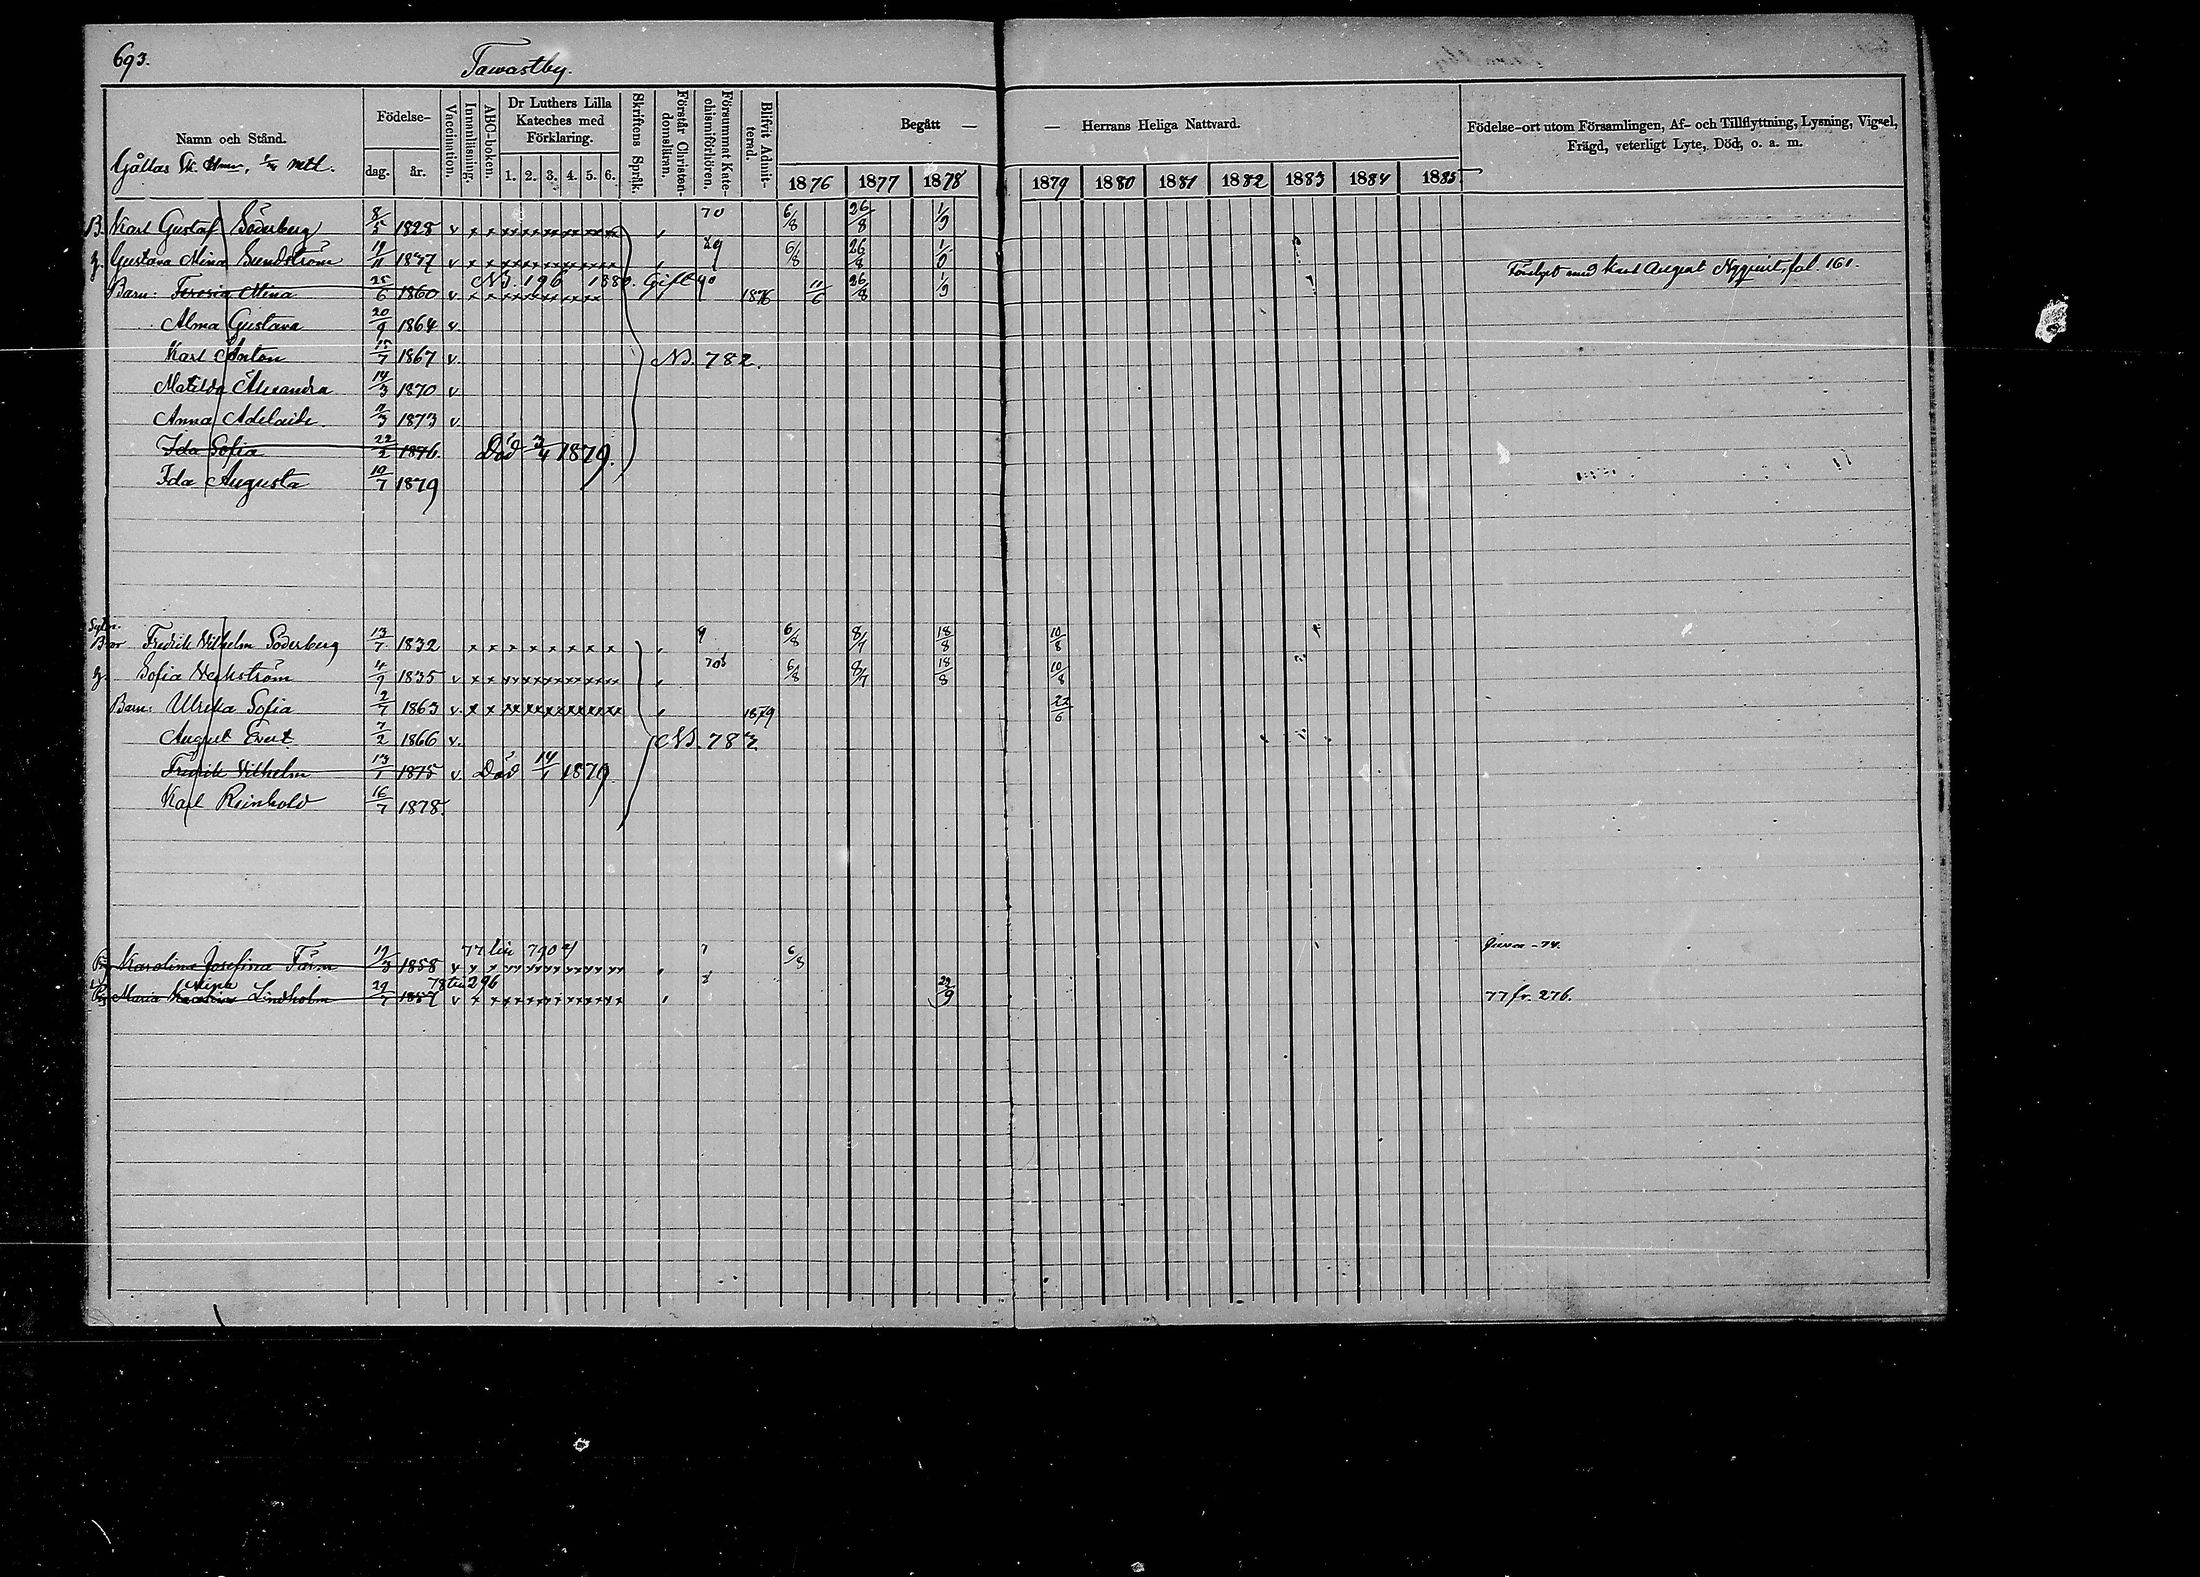 693.
Tawastby.
Namn och Stånd.
Gåltas
mtl.
Födelse-
dag.
år.
Vaccination.
Innanläsning.
ABC-boken.
Dr Luthers Lilla
Kateches med
Förklaring.
1. 2. 3. 4. 5. 6.
Skriftens Språk.
Förstår Christen-
domsläran.
Försummat Kate-
chismiförhören.
Blifvit Admit-
terad.
Begått —
— Herrans Heliga Nattvard.
1876 1877 1878 1879 1880 1881 1882 1883 1884 1885
Födelse-ort utom Församlingen, Af- och Tillflyttning, Lysning, Vigsel,
Frägd, veterligt Lyte, Död, o. a. m.
B. Karl Gustaf Söderberg 8/5 1825 v 70 6/8 26/8 1/9
h. Gustava Mina Sundström 19/11 1837 v 6/8 26/8 1/9
N.B. 196 1880. Gift
Barn: Teresia Mina 25/6 1860 v 1876 11/6 26/8 1/9 med Karl August Nyqvist, fol. 161.
Alma Gustava 20/9 1864 v.
Karl Anton 15/7 1867 v. N.B. 782.
Matilda Alexandra 14/3 1870 v
Anna Adelaide 11/3 1873 v.
Ida Sofia 22/2 1876. Död 3/4 1879.
Ida Augusta 19/7 1879
Bror Fredrik Vilhelm Söderberg 13/7 1832 9 6/8 8/7 18/8 10/8
h. Sofia Weckström 4/9 1835 v 6/8 8/7 18/8 10/8
Barn: Ulrika Sofia 2/7 1863 v. 1879 22/6
August Evert 7/2 1866 v. N.B. 782
Fredrik Vilhelm 13/1 1875 v Död 14/1 1879.
Karl Reinhold 16/7 1878.
77 till 790
Pig Karolina Josefina Färm 19/3 1858 v 6/8
78 till 296
Pig Maria Lindholm 29/7 1857 v 29/9 77 fr. 276.